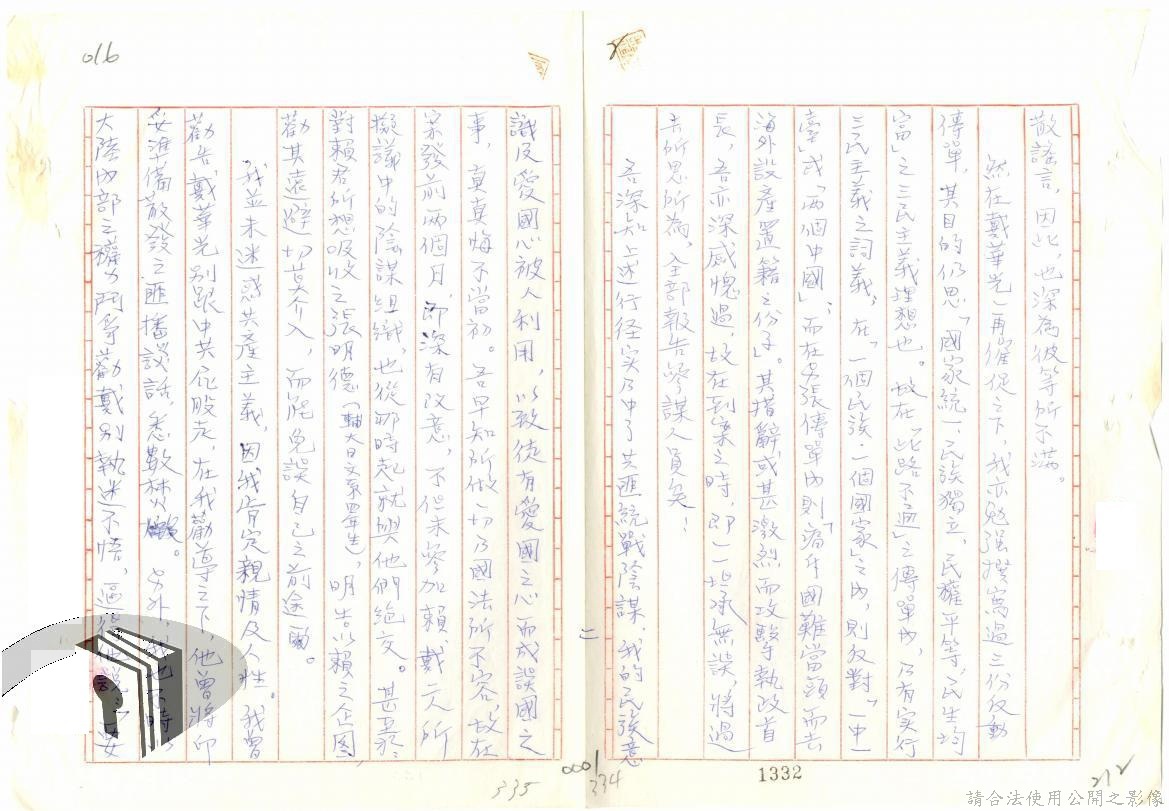 散謠言,因此,也深為彼等所不滿。
然在戴華光一再催促之下,我亦勉强撰寫過三份反動
傳單,其目的仍思「國家統一、民族獨立、民權平等、民生均
富」之三民主義理想也。故在「此路不通」之傳單內,乃有实行
三民主義之詞義,在「一個民族、一個國家」之內,則反對「一中一
臺」或「兩個中國」;而在另張傳單內則「痛斥國難當頭而去
海外設產置籍之份子」。其措辭或甚激烈而攻擊執政首
長,吾亦深感愧過,故在到案之時,即一一坦承無誤,將過
去所思所為,全部報告參謀人員矣!
吾深知上述行径实乃中了共匪統戰陰謀,我的民族意
二
識及愛國心被人利用,以致徒有愛國之心而成誤國之
事,真真悔不當初。吾早知所做一切乃國法所不容,故在
案發前兩個月,即深有改意,不但未參加賴、戴二人所
擬議中的陰謀組織,也從那時起就與他們絕交。甚至於
對賴君所想吸收之張明德(輔大日文系四年生),明告以賴之企图,
勸其遠避切莫介入,而能免誤自己之前途。
我並未迷惑共產主義,因我肯定親情及人性。我曾
勸告戴華光別跟中共屁股走,在我勸導之下,他曾將印
妥準備散發之匪播談話,悉數焚燬。另外,我也不時以
大陸內部之權力鬥爭勸戴別執迷不悟,逼得他說:「妄
016
335
0001
334
1332
212
請合法使用公開之影像